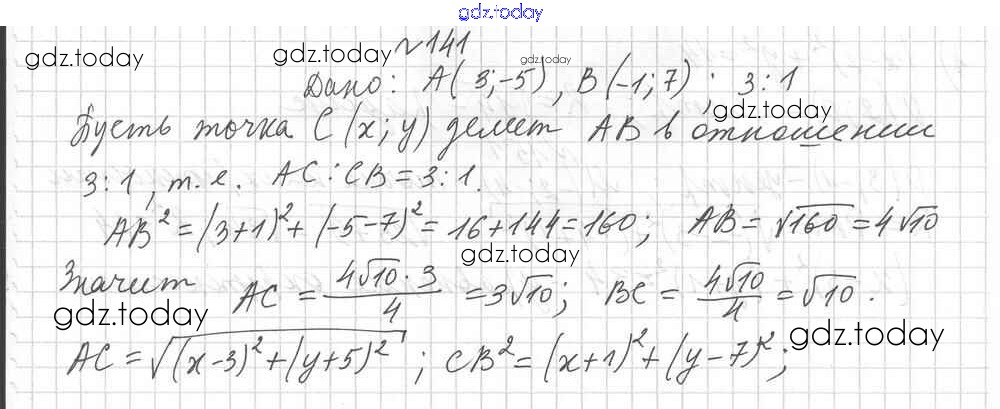 gdz.today
№141
gdz.today gdz.today gdz.today
Дано: A(3;-5), B(-1;7); 3:1
gdz.today
Пусть точка C(x;y) делит AB в отношении
3:1, т.е. AC:CB=3:1.
AB²=(3+1)²+(-5-7)²=16+144=160; AB=√160=4√10
gdz.today
Значит AC = 4√10·3/4 =3√10; BC = 4√10/4 =√10.
gdz.today gdz.today
AC=√((x-3)²+(y+5)²); CB²=(x+1)²+(y-7)²;